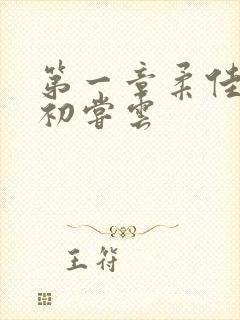 第一章柔佳
初尝雲
王符